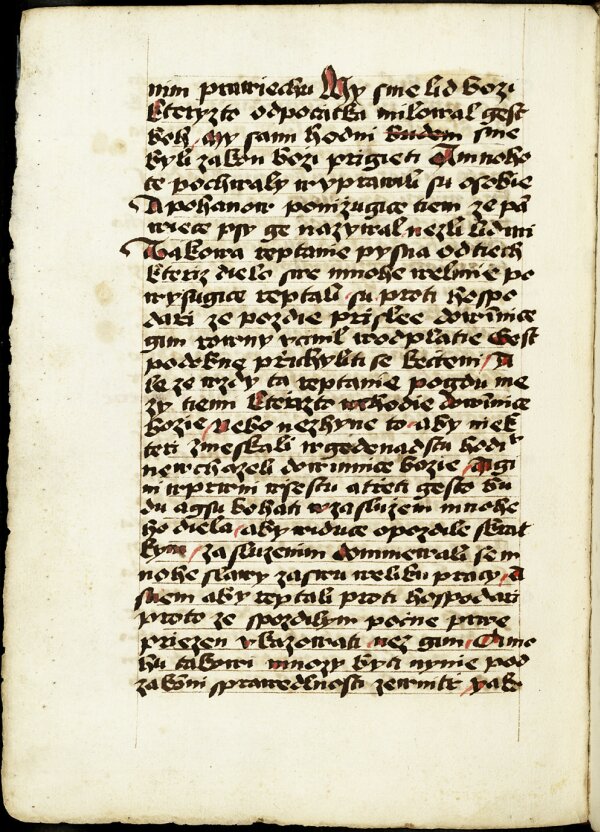 nim prawiechu My sme lid bozi
kteryzto odpocatka milowal gest
boh my sami hodni budem sme
byli zakon bozi prigieti A mnoho
te pochwaly wyprawili su osobie
A pohanow ponizugice tiem ze pa
wiece psy ge nazywal nezli lidmi
Takowa reptanie pysna od tiech
kteriz dielo swe mnohe welmie po
wysugice reptali su proti hospo
dari ze pozdie prislee dowinnice
gim rowny vcinil wodplatie Gest
podobnee prichyliti se kectem A
le ze wzdy ta reptanie pogdu me
zy tiemi kterizto wchodie dowinnice
bozie nebo nezhyne to aby niek
teri zmeskali wgedenadstu hodi
newchazeli dowinnice bozie a gi
ni wprwni wsestu atreti gesto bu
du agsu bohati wzasluzem mnohe
ho diela aby widuce opozdile skrat
kym zasluzenim domniewali se m
nohe slawy zaswu weliku pracy A
snem aby reptali proti hospodari
proto ze spozdilym pocne prwe
priezen vkazowati nez gim A mo
hu takowi mnozy byti nynie pod
zakoni sprawedlnosti zewnitr yako